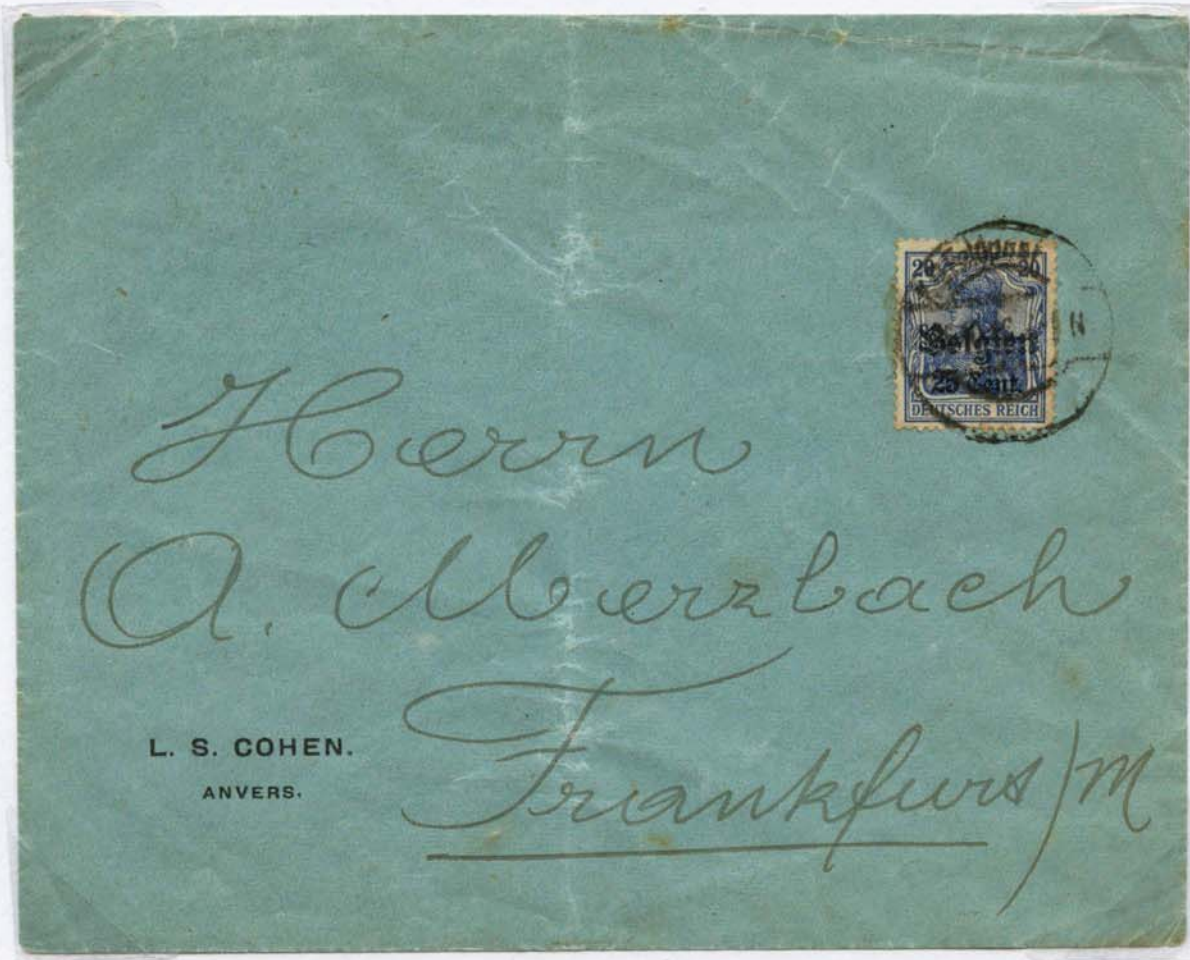 20 20
Belgien
25 Cent.
DEUTSCHES REICH
Herrn
A. Merzbach
Frankfurt/M
L. S. COHEN.
ANVERS.